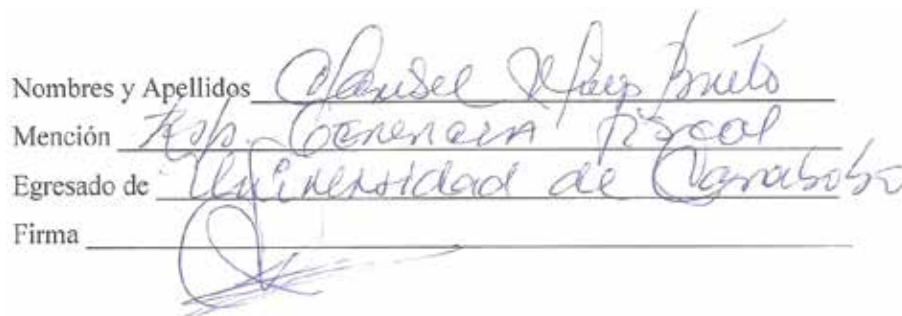 Nombres y Apellidos
Mención Esp. Gerencia Fiscal
Egresado de Universidad de Carabobo
Firma